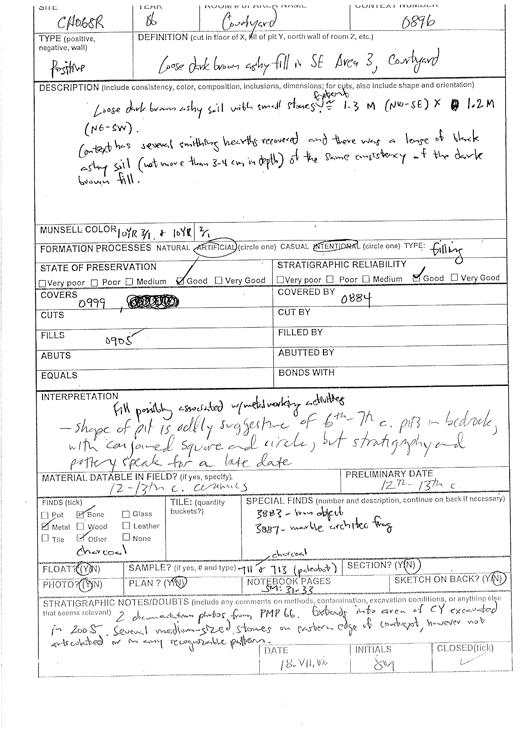 SITE YEAR ROOM # OR AREA NAME CONTEXT NUMBER
CHO6SR 06 Courtyard 0896
TYPE (positive, negative, wall) DEFINITION (cut in floor of X, fill of pit Y, north wall of room Z, etc.)
Positive Loose dark brown ashy fill in SE Area 3, Courtyard
DESCRIPTION (include consistency, color, composition, inclusions, dimensions; for cuts, also include shape and orientation)
Loose dark brown ashy soil with small stones. Extent ≅ 1.3 M (NW-SE) X 1.2M
(NE-SW).
Context has several smithing hearths recovered and there was a lense of black
ashy soil (not more than 3-4 cm in depth) of the same consistency of the dark
brown fill.
MUNSELL COLOR 10YR 3/1, & 10YR 2/1
FORMATION PROCESSES NATURAL ARTIFICIAL (circle one) CASUAL INTENTIONAL (circle one) TYPE: filling
STATE OF PRESERVATION STRATIGRAPHIC RELIABILITY
Very poor Poor Medium Good Very Good Very poor Poor Medium Good Very Good
COVERS 0999, COVERED BY 0884
CUTS CUT BY
FILLS 0905 FILLED BY
ABUTS ABUTTED BY
EQUALS BONDS WITH
INTERPRETATION
Fill possibly associated w/metalworking activities
- shape of pit is oddly suggestive of 6th-7th c. pits in bedrock,
with conjoined square and circle, but stratigraphy and
pottery speak for a late date
MATERIAL DATABLE IN FIELD? (if yes, specify), PRELIMINARY DATE
12-13th c. ceramics 12th-13th c
FINDS (tick) TILE: (quantity buckets?) SPECIAL FINDS (number and description, continue on back if necessary)
Pot Bone Glass 3883 - iron object
Metal Wood Leather 3887 - marble architec frag
Tile Other None
charcoal
charcoal
FLOAT? (Y/N) SAMPLE? (if yes, # and type) 711 & 713 (paleobot) SECTION? (Y/N)
PHOTO? (Y/N) PLAN? (Y/N) NOTEBOOK PAGES SM: 31-33 SKETCH ON BACK? (Y/N)
STRATIGRAPHIC NOTES/DOUBTS (include any comments on methods, contamination, excavation conditions, or anything else
that seems relevant) 2 documentation photos from PMP 66. Extends into area of CY excavated
in 2005. Several medium-sized stones on eastern edge of context, however not
articulated or in any recognizable pattern.
DATE INITIALS CLOSED (tick)
18.VII.06